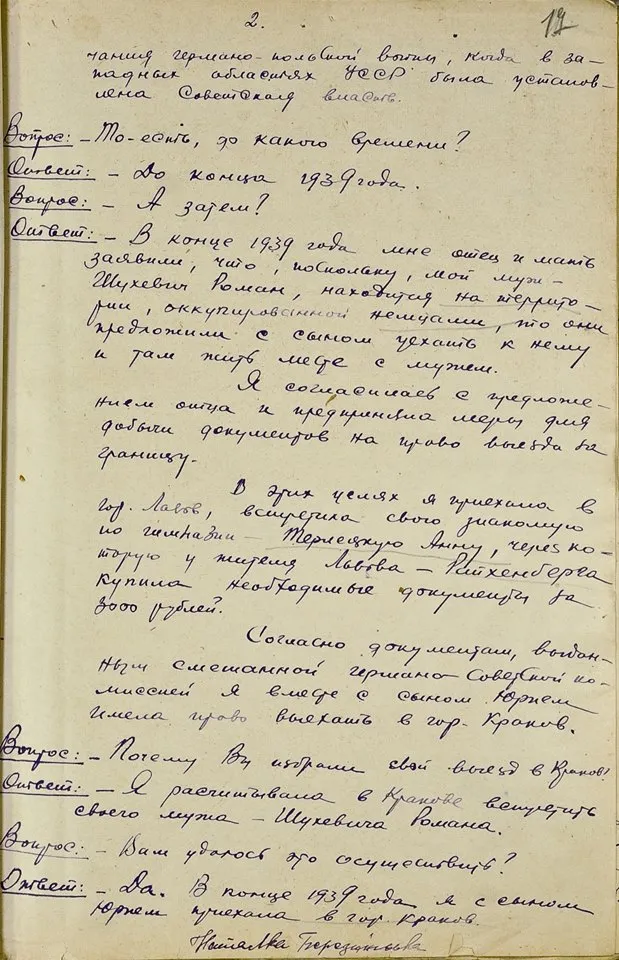 2.
17
чания германо-польской войны, когда в за-
падных областях УССР была установ-
лена Советская власть.
Вопрос: - То-есть, до какого времени?
Ответ: - До конца 1939 года.
Вопрос: - А затем?
Ответ: - В конце 1939 года мне отец и мать
заявили, что, поскольку, мой муж -
Шухевич Роман, находится на террито-
рии, оккупированной немцами, то они
предложили с сыном уехать к нему
и там жить месте с мужем.
Я согласилась с предложе-
нием отца и предприняла меры для
добычи документов на право выезда за
границу.
В этих целях я приехала в
гор. Львов, встретила свою знакомую
по гимназии - Терлецкую Анну, через ко-
торую у жителя Львова - Райхенберга
купила необходимые документы за
3000 рублей.
Согласно документам, выдан-
ным смешанной германо-Советской ко-
миссией я вместе с сыном Юрием
имела право выехать в гор. Краков.
Вопрос: - Почему Вы избрали свой выезд в Краков?
Ответ: - Я расчитывала в Кракове встретить
своего мужа - Шухевича Романа.
Вопрос: - Вам удалось это осуществить?
Ответ: - Да. В конце 1939 года я с сыном
Юрием приехала в гор. Краков.
Наталка Березинська